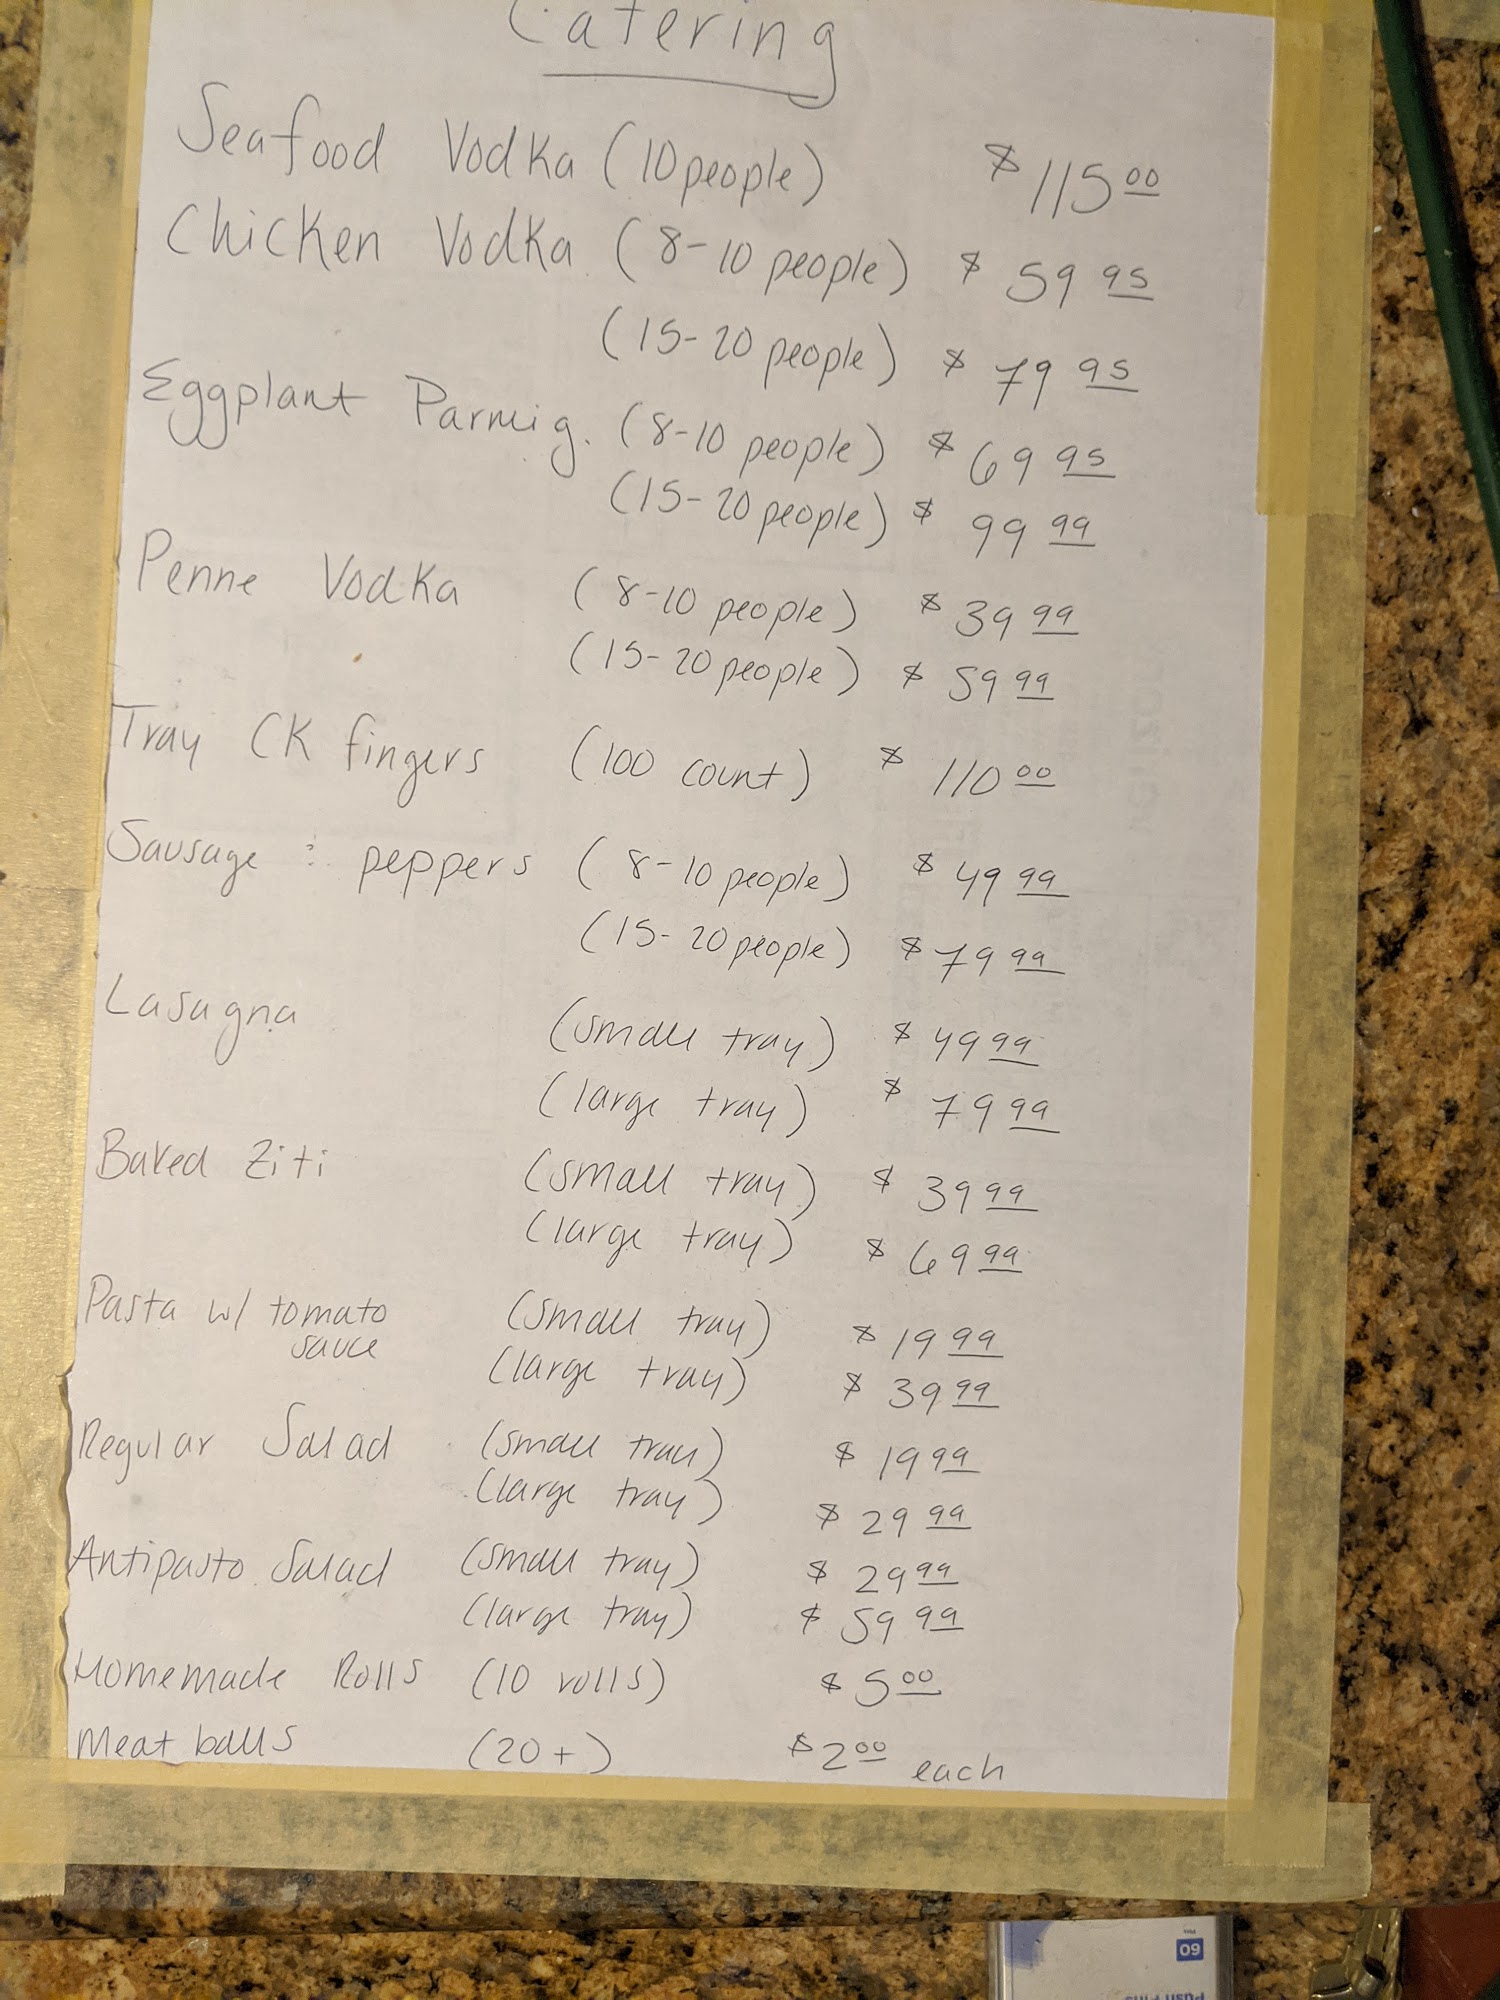 Catering
Seafood Vodka (10 people) $115.00
Chicken Vodka (8-10 people) $59.95
(15-20 people) $79.95
Eggplant Parmig. (8-10 people) $69.95
(15-20 people) $99.99
Penne Vodka (8-10 people) $39.99
(15-20 people) $59.99
Tray CK fingers (100 count) $110.00
Sausage : peppers (8-10 people) $49.99
(15-20 people) $79.99
Lasagna (small tray) $49.99
(large tray) $79.99
Baked Ziti (small tray) $39.99
(large tray) $69.99
Pasta w/ tomato sauce (small tray) $19.99
(large tray) $39.99
Regular Salad (small tray) $19.99
(large tray) $29.99
Antipasto Salad (small tray) $29.99
(large tray) $59.99
Homemade Rolls (10 rolls) $5.00
Meat balls (20+) $2.00 each
60
Push Pins